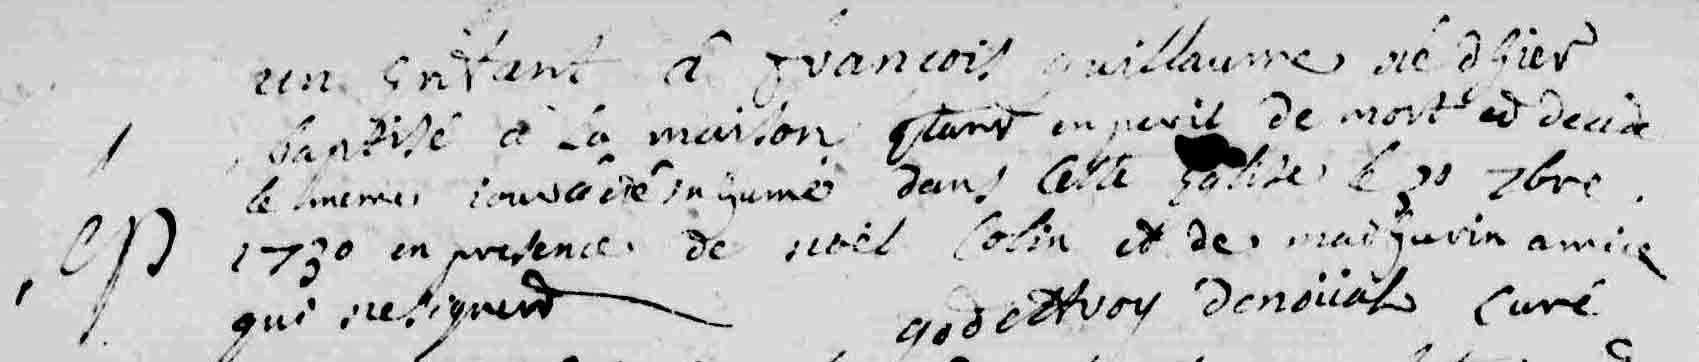 un enfant a françois guillaume né d'hier
baptisé a La maison etant en peril de mort et decede
le meme jour a été inhumé dans cette eglise le 30 7bre
1730 en presence de noel Colin et de mathurin amice
qui ne signent godeffroy denoüal Curé